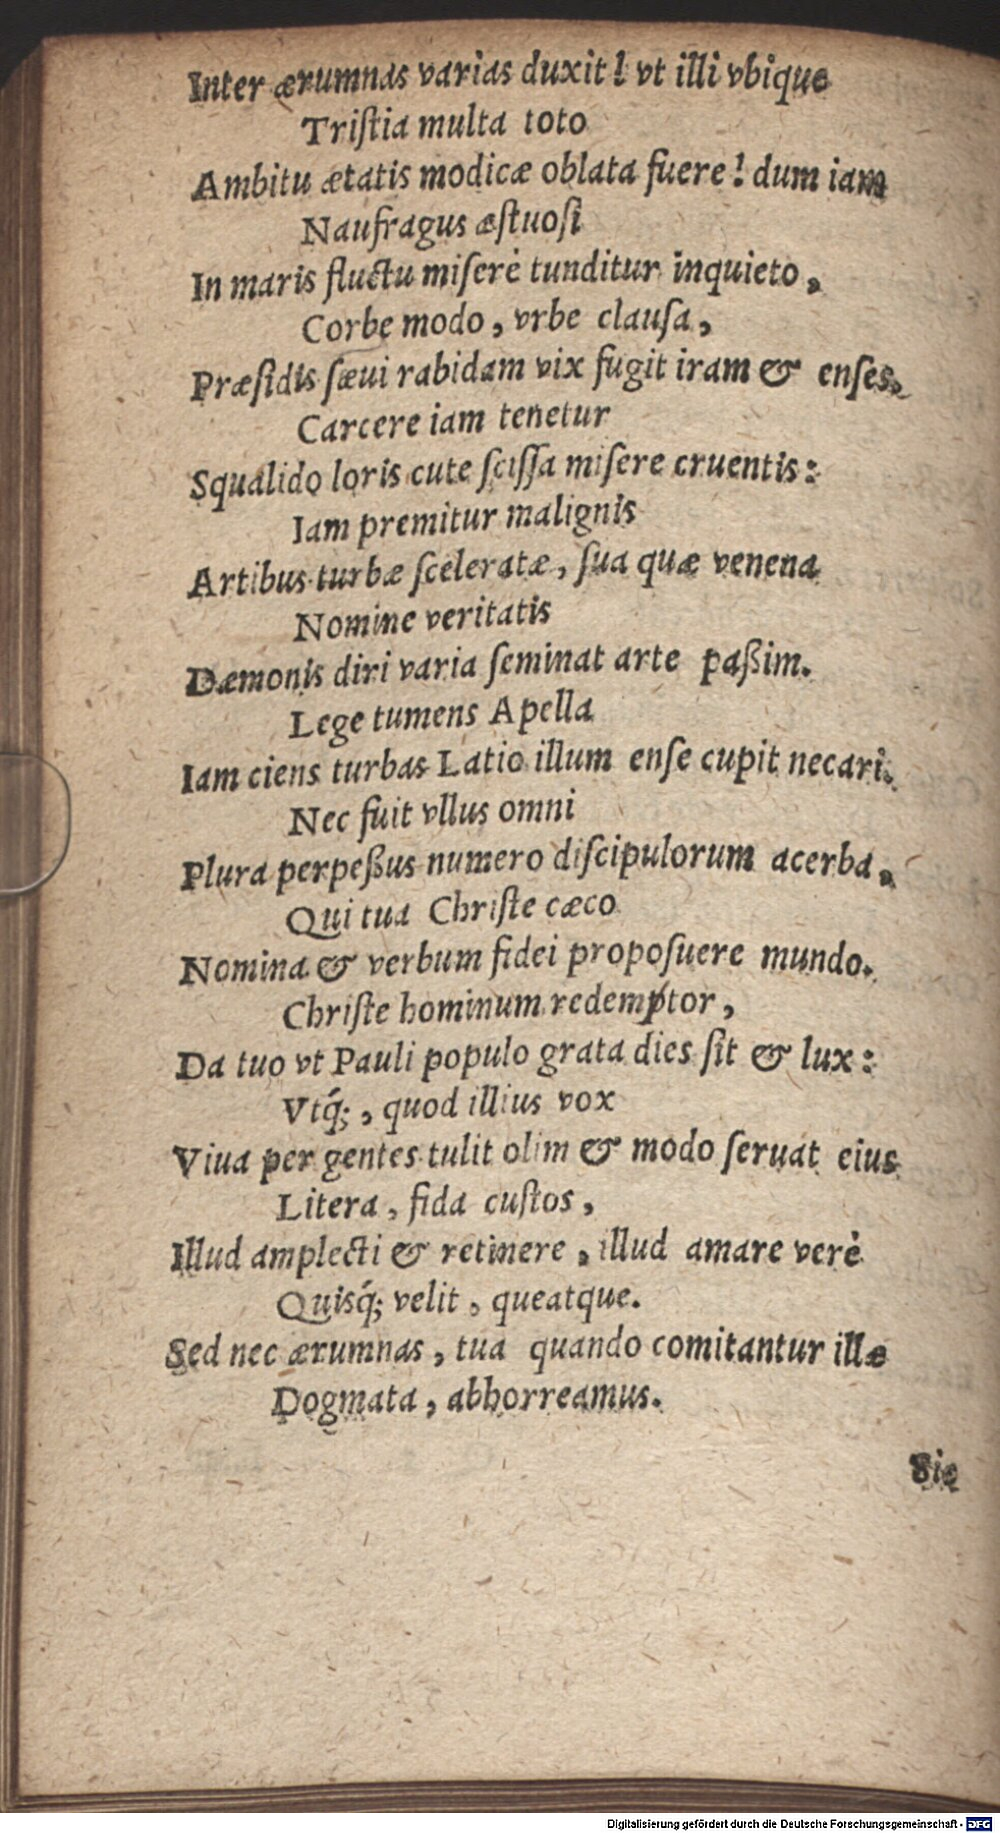 Inter ærumnas varias duxit! vt illi vbique
Triſtia multa toto
Ambitu ætatis modicæ oblata fuere! dum iam
Naufragus æſtuoſi
In maris fluctu miſerè tunditur inquieto,
Corbe modo, vrbe clauſa,
Præſidis ſæui rabidam vix fugit iram & enſes.
Carcere iam tenetur
Squalido loris cute ſciſſa miſere cruentis:
Iam premitur malignis
Artibus turbæ ſceleratæ, ſua quæ venena
Nomine veritatis
Dæmonis diri varia ſeminat arte paßim.
Lege tumens Apella
Iam ciens turbas Latio illum enſe cupit necari.
Nec fuit vllus omni
Plura perpeßus numero diſcipulorum acerba,
Qui tua Chriſte cæco
Nomina & verbum fidei propoſuere mundo.
Chriſte hominum redemptor,
Da tuo vt Pauli populo grata dies ſit & lux:
Vtq́;, quod illius vox
Viua per gentes tulit olim & modo ſeruat eius
Litera, fida cuſtos,
Illud amplecti & retinere, illud amare verè
Quisq́; velit, queatque.
Sed nec ærumnas, tua quando comitantur illæ
Dogmata, abhorreamus.
Sic
Digitalisierung gefördert durch die Deutsche Forschungsgemeinschaft - DFG